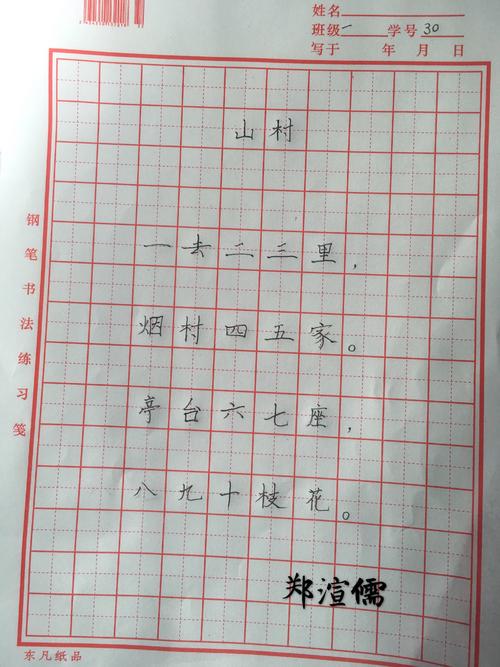 姓名
班级 一 学号 30
写于 年 月 日
钢笔书法练习笺
山村
一去二三里，
烟村四五家。
亭台六七座，
八九十枝花。
郑渲儒
东凡纸品